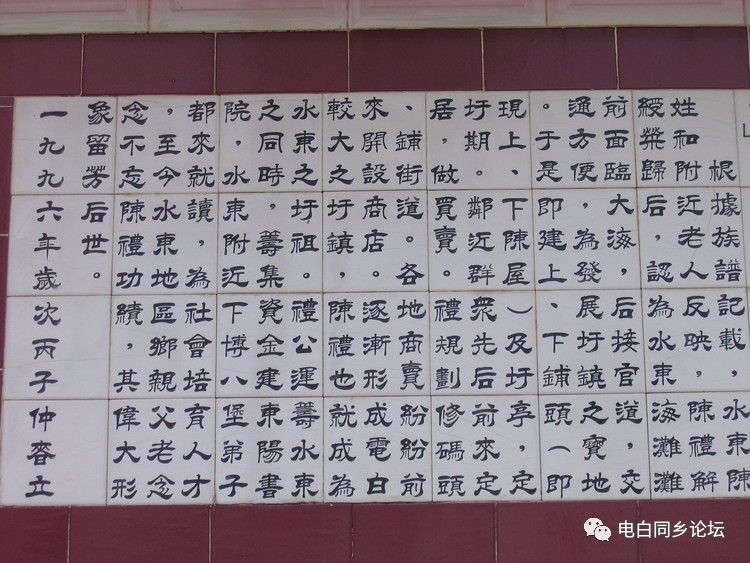 根據族譜記載，水東陳
姓和附近老人反映，陳禮解
綬榮歸后，認為水東海灘灘
前面臨大海，后接官道，交
通方便，為發展圩鎮之寶地
。于是即建上、下鋪頭（即
現上、下陳屋）及圩亭，定
圩期。鄰近群眾先后前來定
居，做買賣。禮規劃修碼頭
、鋪街道。各地商賣紛紛前
來開設商店。逐漸形成電白
較大之圩鎮，陳禮也就成為
水東之圩祖。禮公運籌水東
之同時，籌集資金建東陽書
院，水東附近下博八堡弟子
都來就讀，為社會培育人才
，至今水東地區鄉親父老念
念不忘陳禮功績，其偉大形
象留芳后世。
一九九六年歲次丙子仲春立
电白同乡论坛